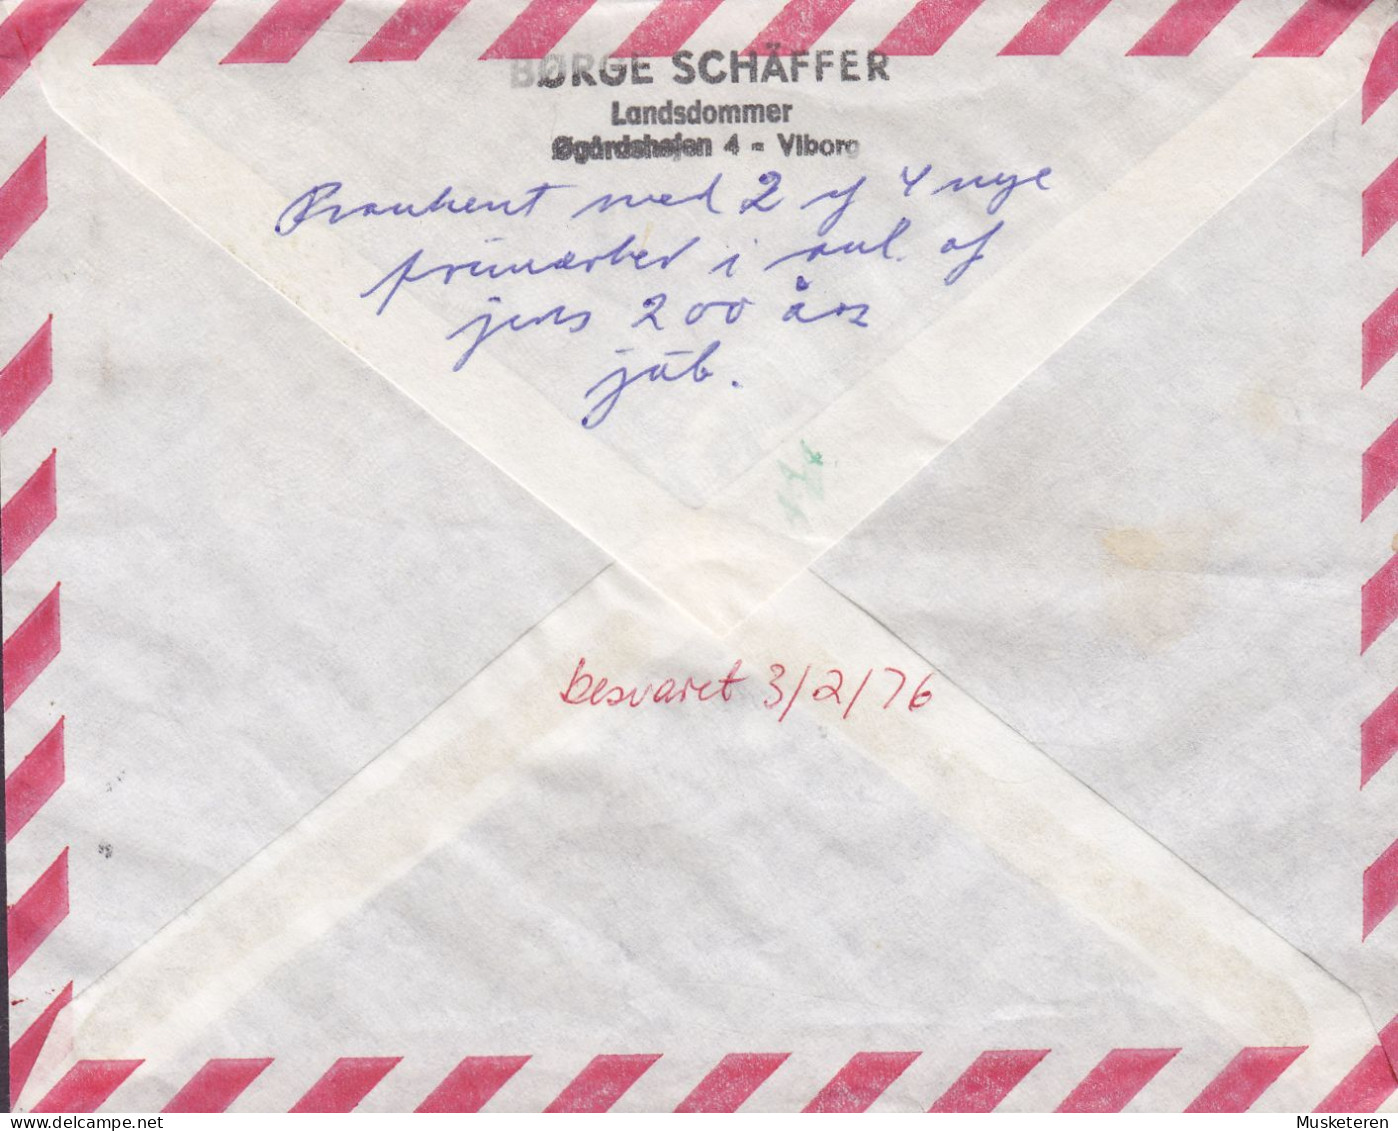 BØRGE SCHÄFFER
Landsdommer
Øgårdshøjen 4 - Viborg
Frankeret med 2 af 4 nye
frimærker i anl. af
200 års
jub.
besvaret 3/2/76
Musketeren